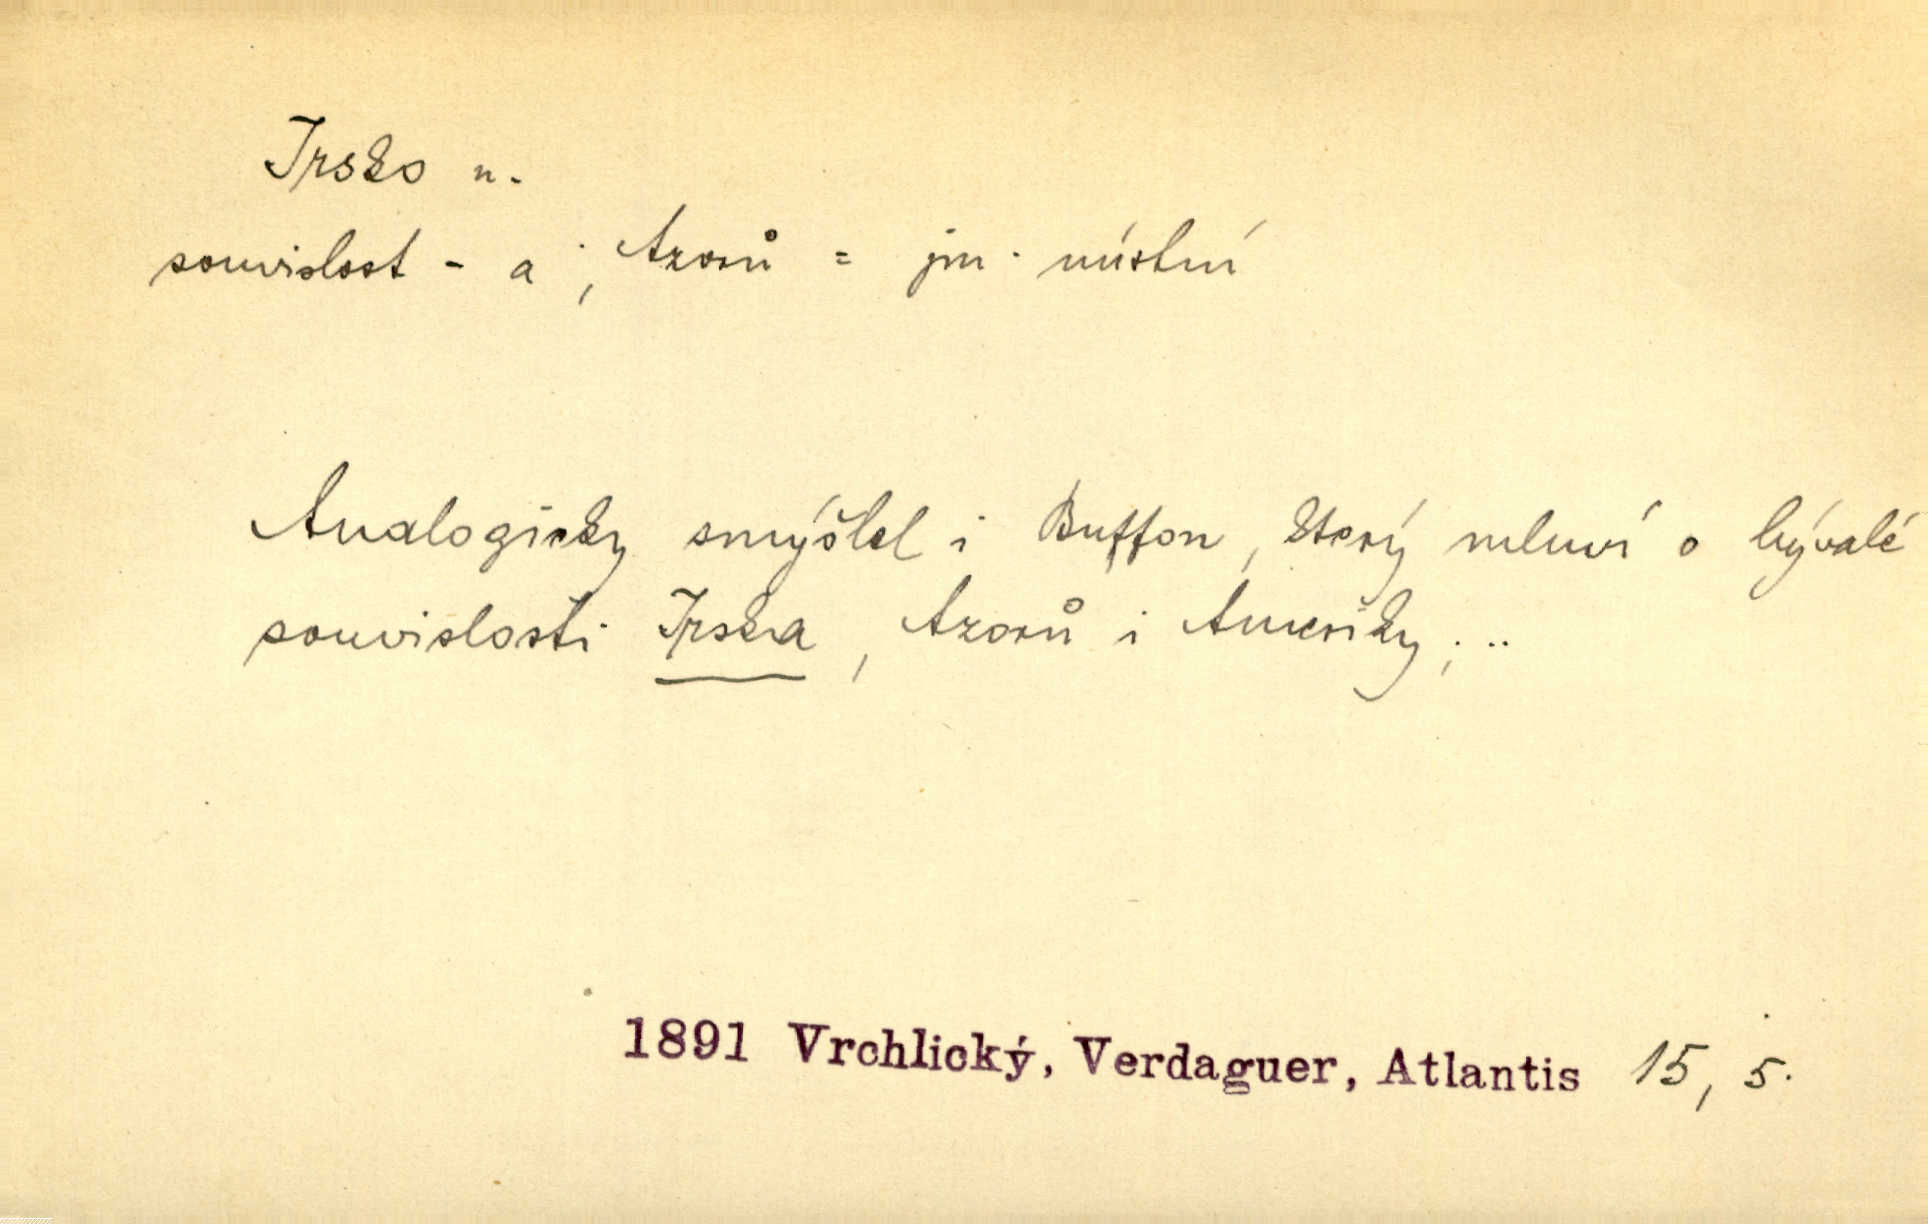 Irsko n.
souvislost - a, Azorů = jm. místní
Analogicky smýšlel i Buffon, který mluví o bývalé
souvislosti Irska, Azorů i Ameriky; ..
1891 Vrchlický, Verdaguer, Atlantis 15, 5.